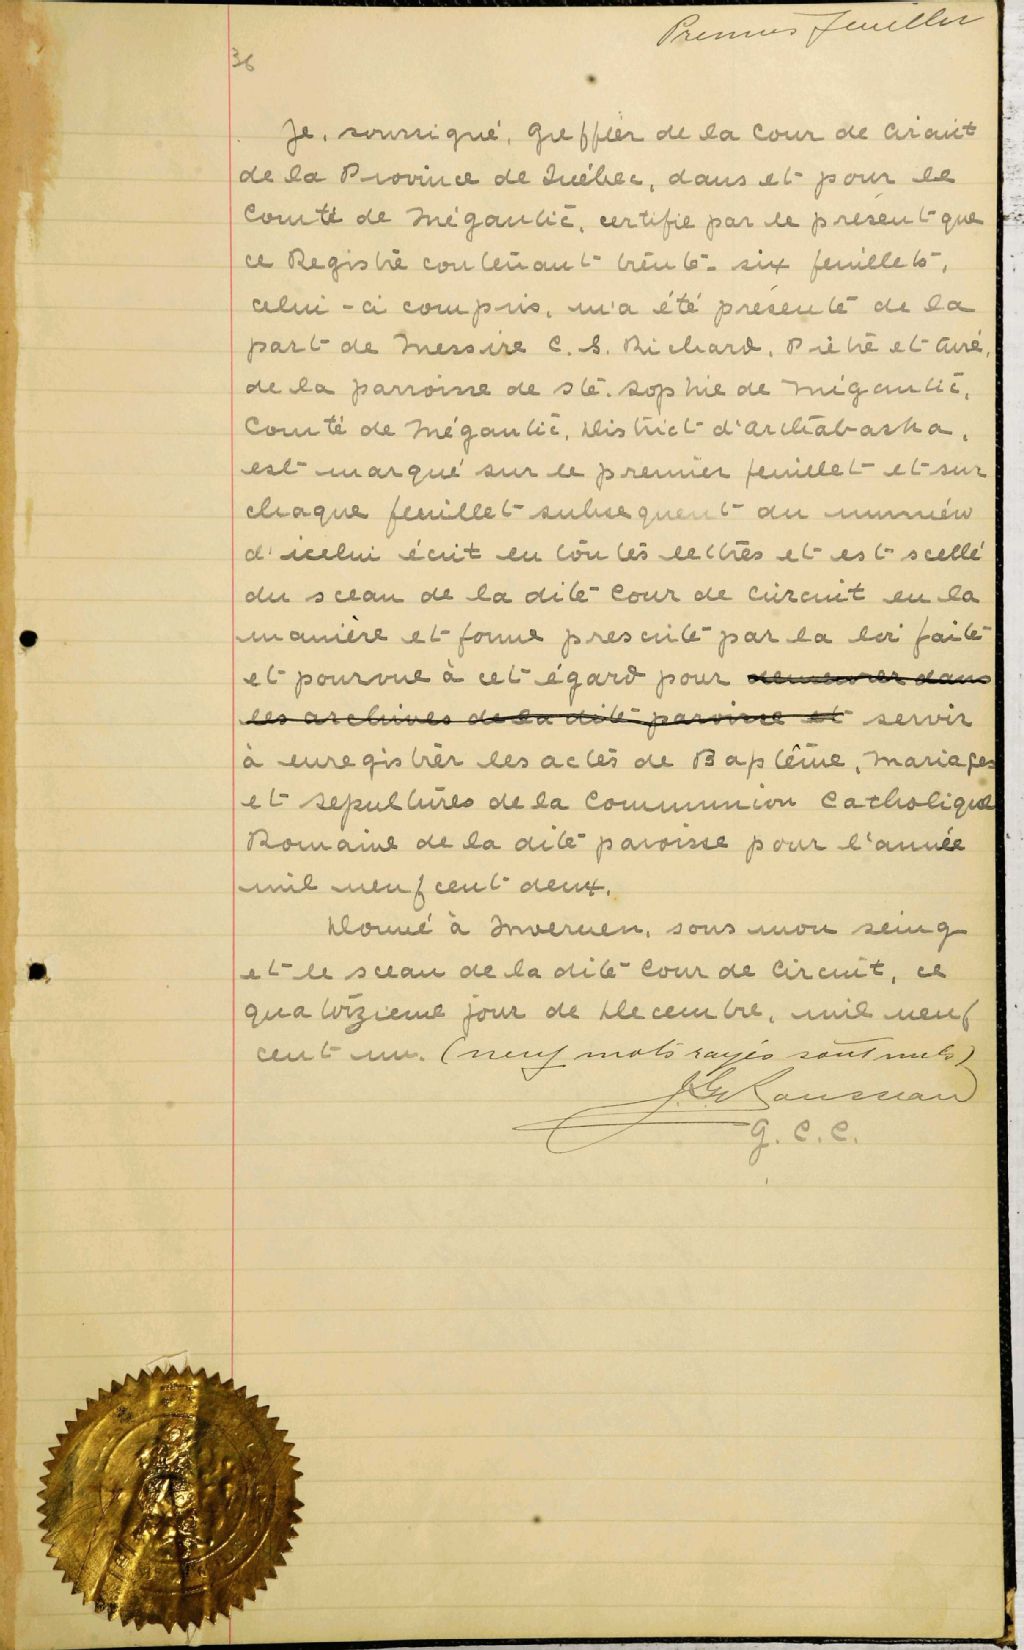 Premier feuillet
36
Je, soussigné, Greffier de la Cour de Circuit
de la Province de Québec, dans et pour le
Comté de Mégantic, certifie par le présent que
ce Registre contenant trente-six feuillets,
celui-ci compris, m'a été présenté de la
part de Messire C. S. Richard, Prêtre et Curé,
de la parroisse de Ste. Sophie de Mégantic,
Comté de Mégantic, District d'Arthabaska,
est marqué sur le premier feuillet et sur
chaque feuillet subsequent du numéro
d'icelui écrit en toutes lettres et est scellé
du sceau de la dite Cour de Circuit en la
manière et forme prescrite par la loi faite
et pourvue à cet égard pour demeurer dans
les archives de la dite paroisse et servir
à enregistrer les actes de Baptême, Mariages
et Sepultures de la Communion Catholique
Romaine de la dite paroisse pour l'année
mil neuf cent deux.
Donné à Inverness, sous mon seing
et le sceau de la dite Cour de Circuit, ce
quatorzieme jour de Decembre, mil neuf
cent un. (neuf mots rayés sont nuls)
Rousseau
G. C. C.